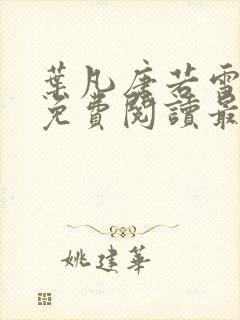 葉凡唐若雪
免費閱讀最
姚建華